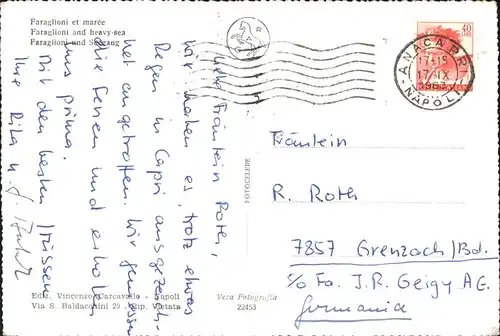 Faraglioni et marée
Faraglioni and heavy-sea
Faraglioni und Seegang
40
ANACAPRI
17-18
17·IX
1963
NAPOLI
Fräulein Roth,
wir haben es, trotz etwas
Regen in Capri ausgezeich-
net angetroffen. Wir geniessen
die Ferien und erholen
uns prima.
Mit den besten Grüssen
Ihre Rita u.
Fräulein
R. Roth
7857 Grenzach/Bd.
c/o Fa. J.R. Geigy AG.
Germania
FOTOCELERE
Ediz. Vincenzo Carcavallo - Napoli
Via S. Baldacchini 29 - Rip. Vietata
Vera Fotografia
22453